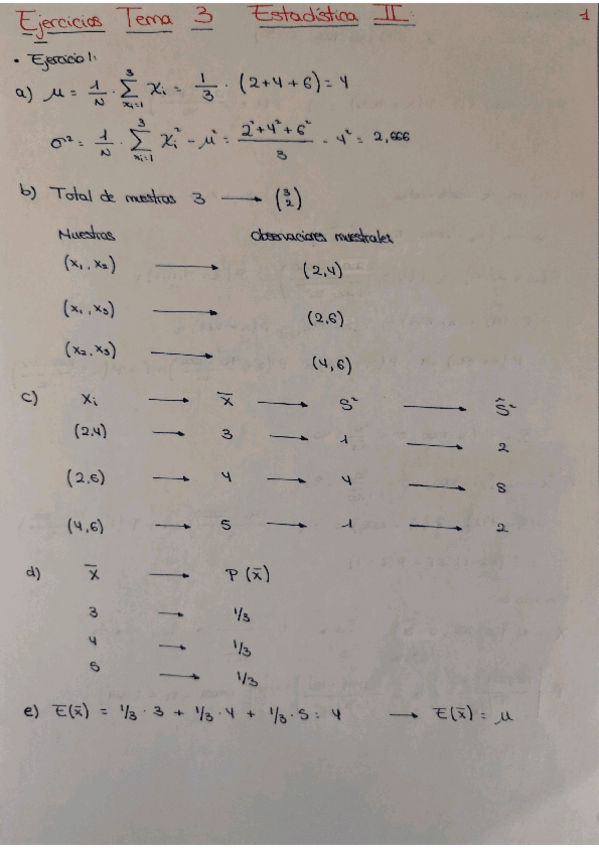 Ejercicios Tema 3 Estadística II. 1
• Ejercicio 1:
a) μ = 1/N · Σ³ₓᵢ₌₁ xᵢ = 1/3 · (2+4+6) = 4
σ² = 1/N · Σ³ₓᵢ₌₁ xᵢ² - μ² = (2²+4²+6²)/3 - 4² = 2,666
b) Total de muestras 3 → (3 2)
Muestras Observaciones muestrales
(x₁, x₂) → (2,4)
(x₁, x₃) → (2,6)
(x₂, x₃) → (4,6)
c) Xᵢ → x̄ → S² → Ŝ²
(2,4) → 3 → 1 → 2
(2,6) → 4 → 4 → 8
(4,6) → 5 → 1 → 2
d) x̄ → P(x̄)
3 → 1/3
4 → 1/3
5 → 1/3
e) E(x̄) = 1/3 · 3 + 1/3 · 4 + 1/3 · 5 = 4 → E(x̄) = μ